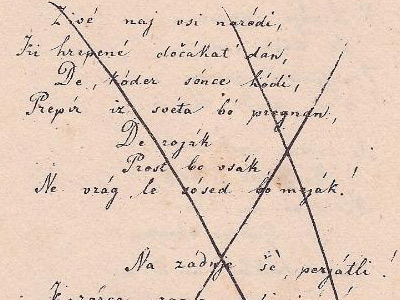 Živé naj vsi naródi,
Ki hrepené dočákat' dán,
De, kóder sónce hódi,
Prepír iz svéta bó pregnán,
De roják
Prost bo vsák,
Ne vrág, le sósed bo meják!
Na zádnje še, perjátli!